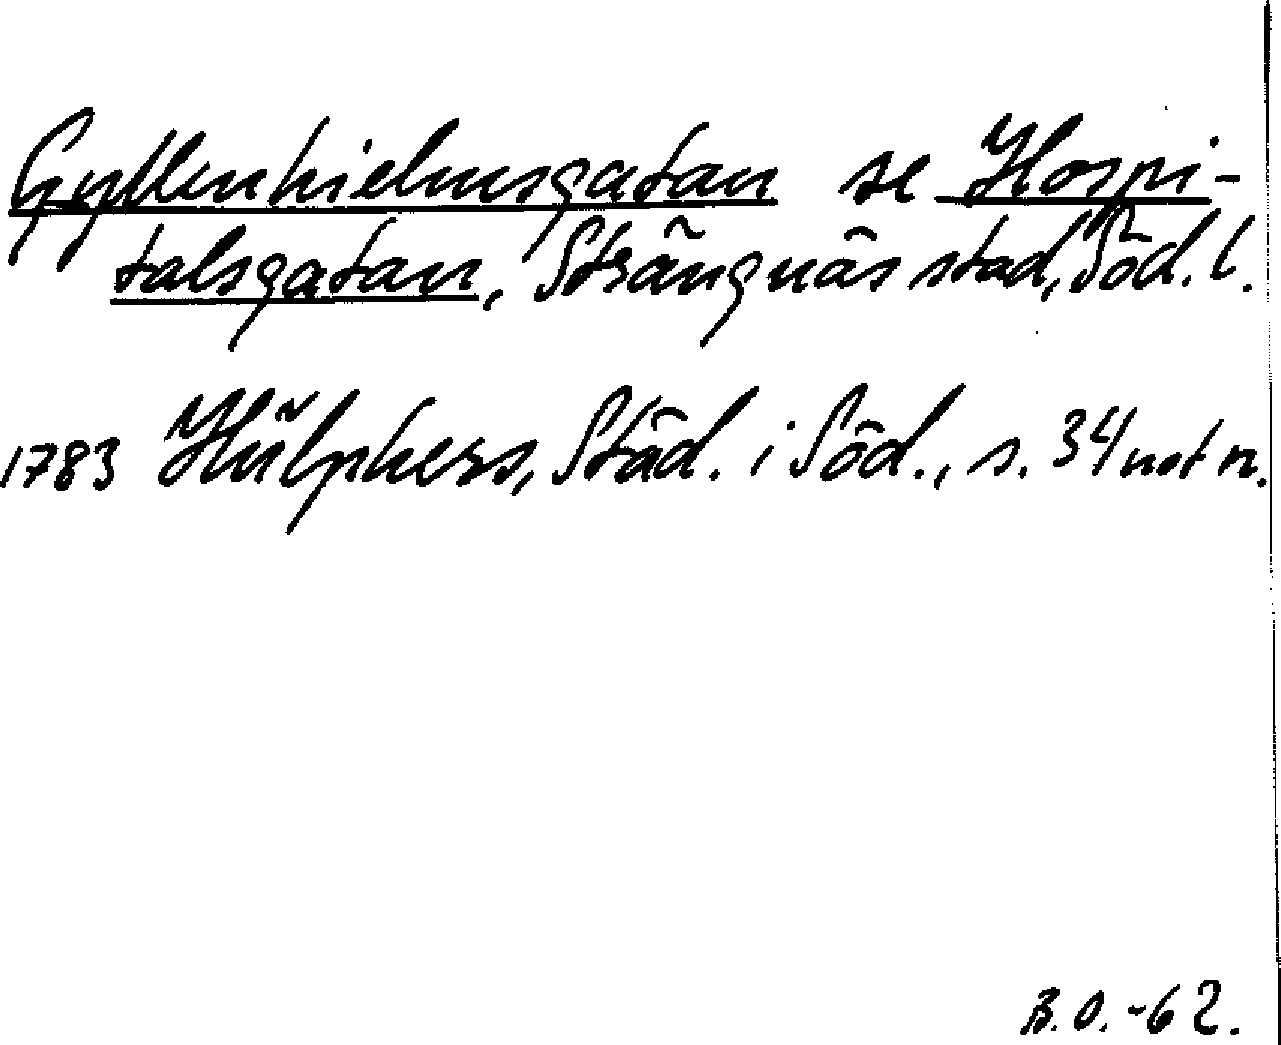 Gyllenhielmsgatan se Hospi-
talsgatan, Strängnäs stad, Söd. l.
1783 Hülphers, Städ. i Söd., s. 34 not n.
B.O.-62.